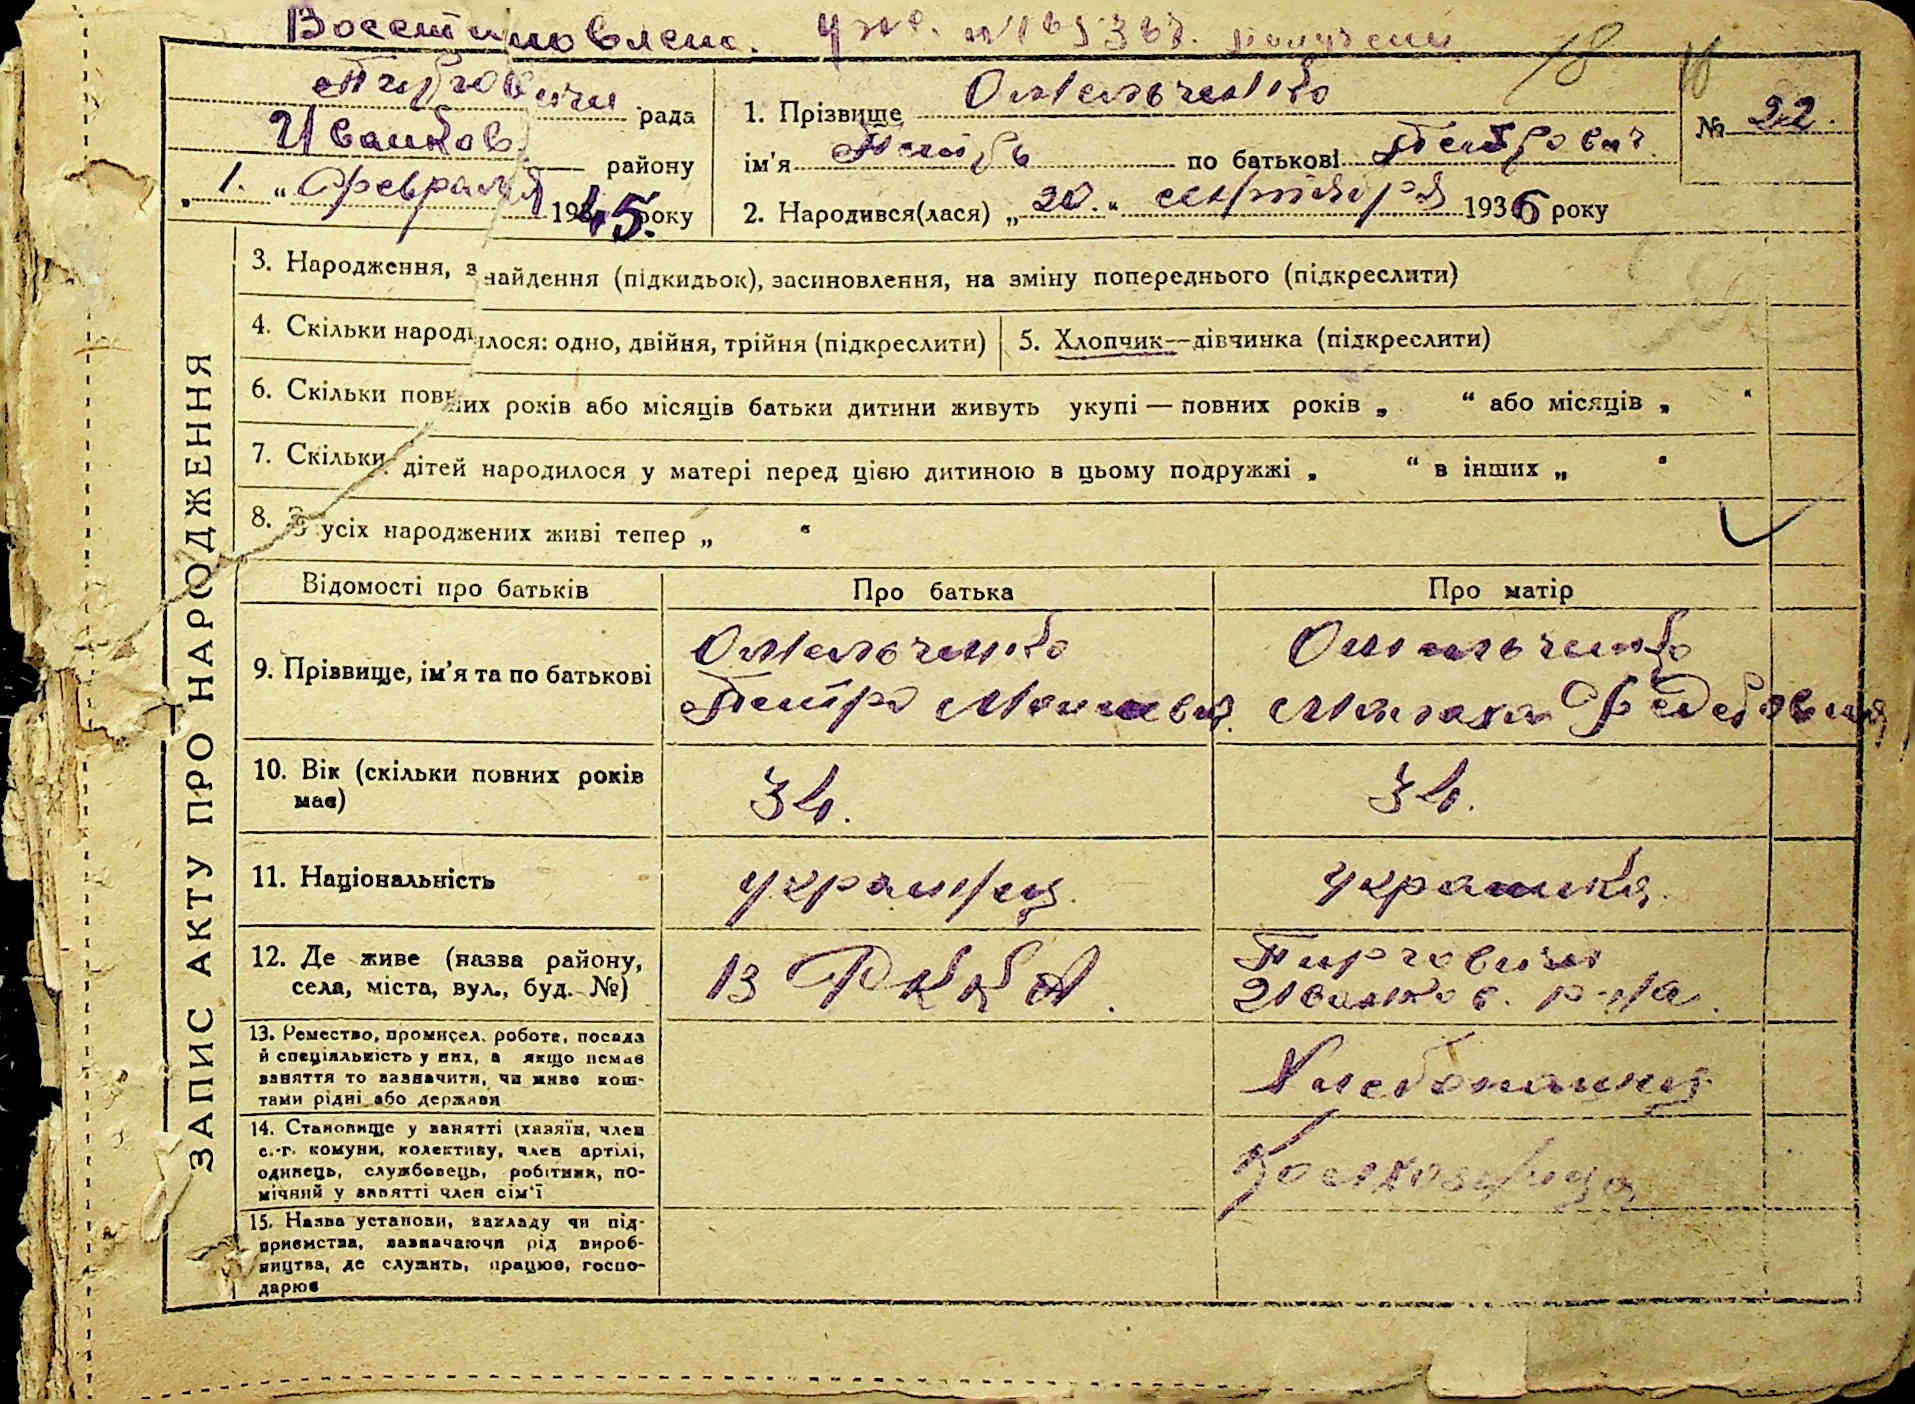 Восстановлено.
Пирговичи рада
Иванков. районy
„ 1. “ февраля 1945. року
1. Прізвище Омельченко
ім'я Петръ по батькові Петрович
№ 22.
2. Народився(лася) „ 20. “ октября 1936 року
18
ЗАПИС АКТУ ПРО НАРОДЖЕННЯ
3. Народження, знайдення (підкидьок), засиновлення, на зміну попереднього (підкреслити)
4. Скільки народилося: одно, двійня, трійня (підкреслити)
5. Хлопчик—дівчинка (підкреслити)
6. Скільки повних років або місяців батьки дитини живуть укупі — повних років „ “ або місяців „ “
7. Скільки дітей народилося у матері перед цією дитиною в цьому подружжі „ “ в інших „ “
8. З усіх народжених живі тепер „ “
Відомості про батьків
Про батька
Про матір
9. Прізвище, ім'я та по батькові
Омельченко
Петро
Омельченко
Малаха Федоровна
10. Вік (скільки повних років
має)
34.
34.
11. Національність
украинец
украинка
12. Де живе (назва району,
села, міста, вул., буд. №)
В РККА.
Пирговичи
Иванков. р-на
13. Ремество, промисел. роботе, посада
й спеціяльність у них, а якщо немає
заняття то зазначити, чи живе кош-
тами рідні або держави
Хлебопашец
14. Становище у занятті (хазяїн, член
с.-г. комуни, колективу, член артілі,
одинець, службовець, робітник, по-
мічний у занятті член сім'ї
колхозница
15. Назва установи, закладу чи під-
приємства, зазначаючи рід вироб-
ництва, де служить, працює, госпо-
дарює